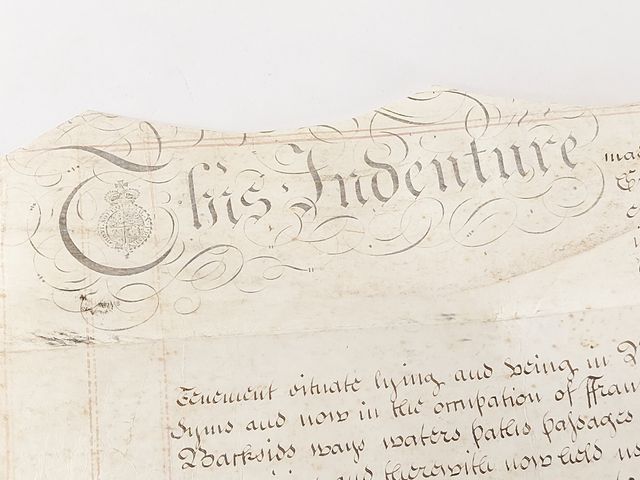 This Indenture
Tenement situate lying and being in
Syms and now in the occupation of ffran
Backsids ways waters paths passages
and therewith now held